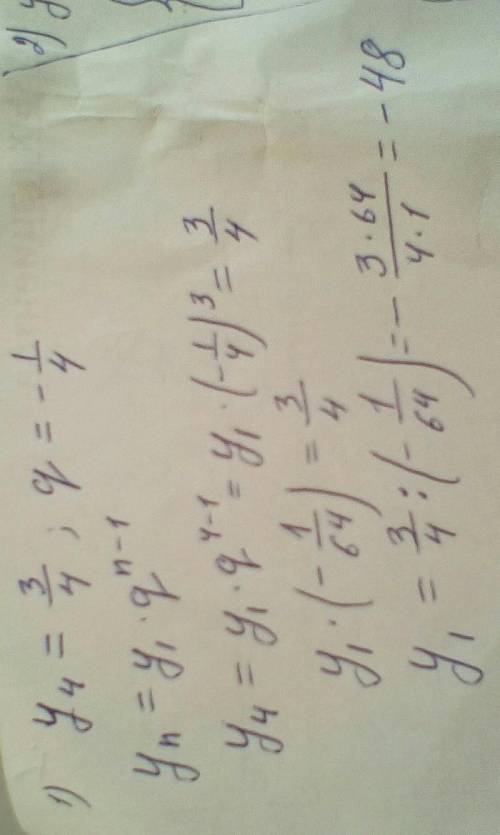 1) y₄ = 3/4 ; q = -1/4
yₙ = y₁ · qⁿ⁻¹
y₄ = y₁ · q⁴⁻¹ = y₁ · (-1/4)³ = 3/4
y₁ · (-1/64) = 3/4
y₁ = 3/4 : (-1/64) = - 3·64/4·1 = -48
2) y